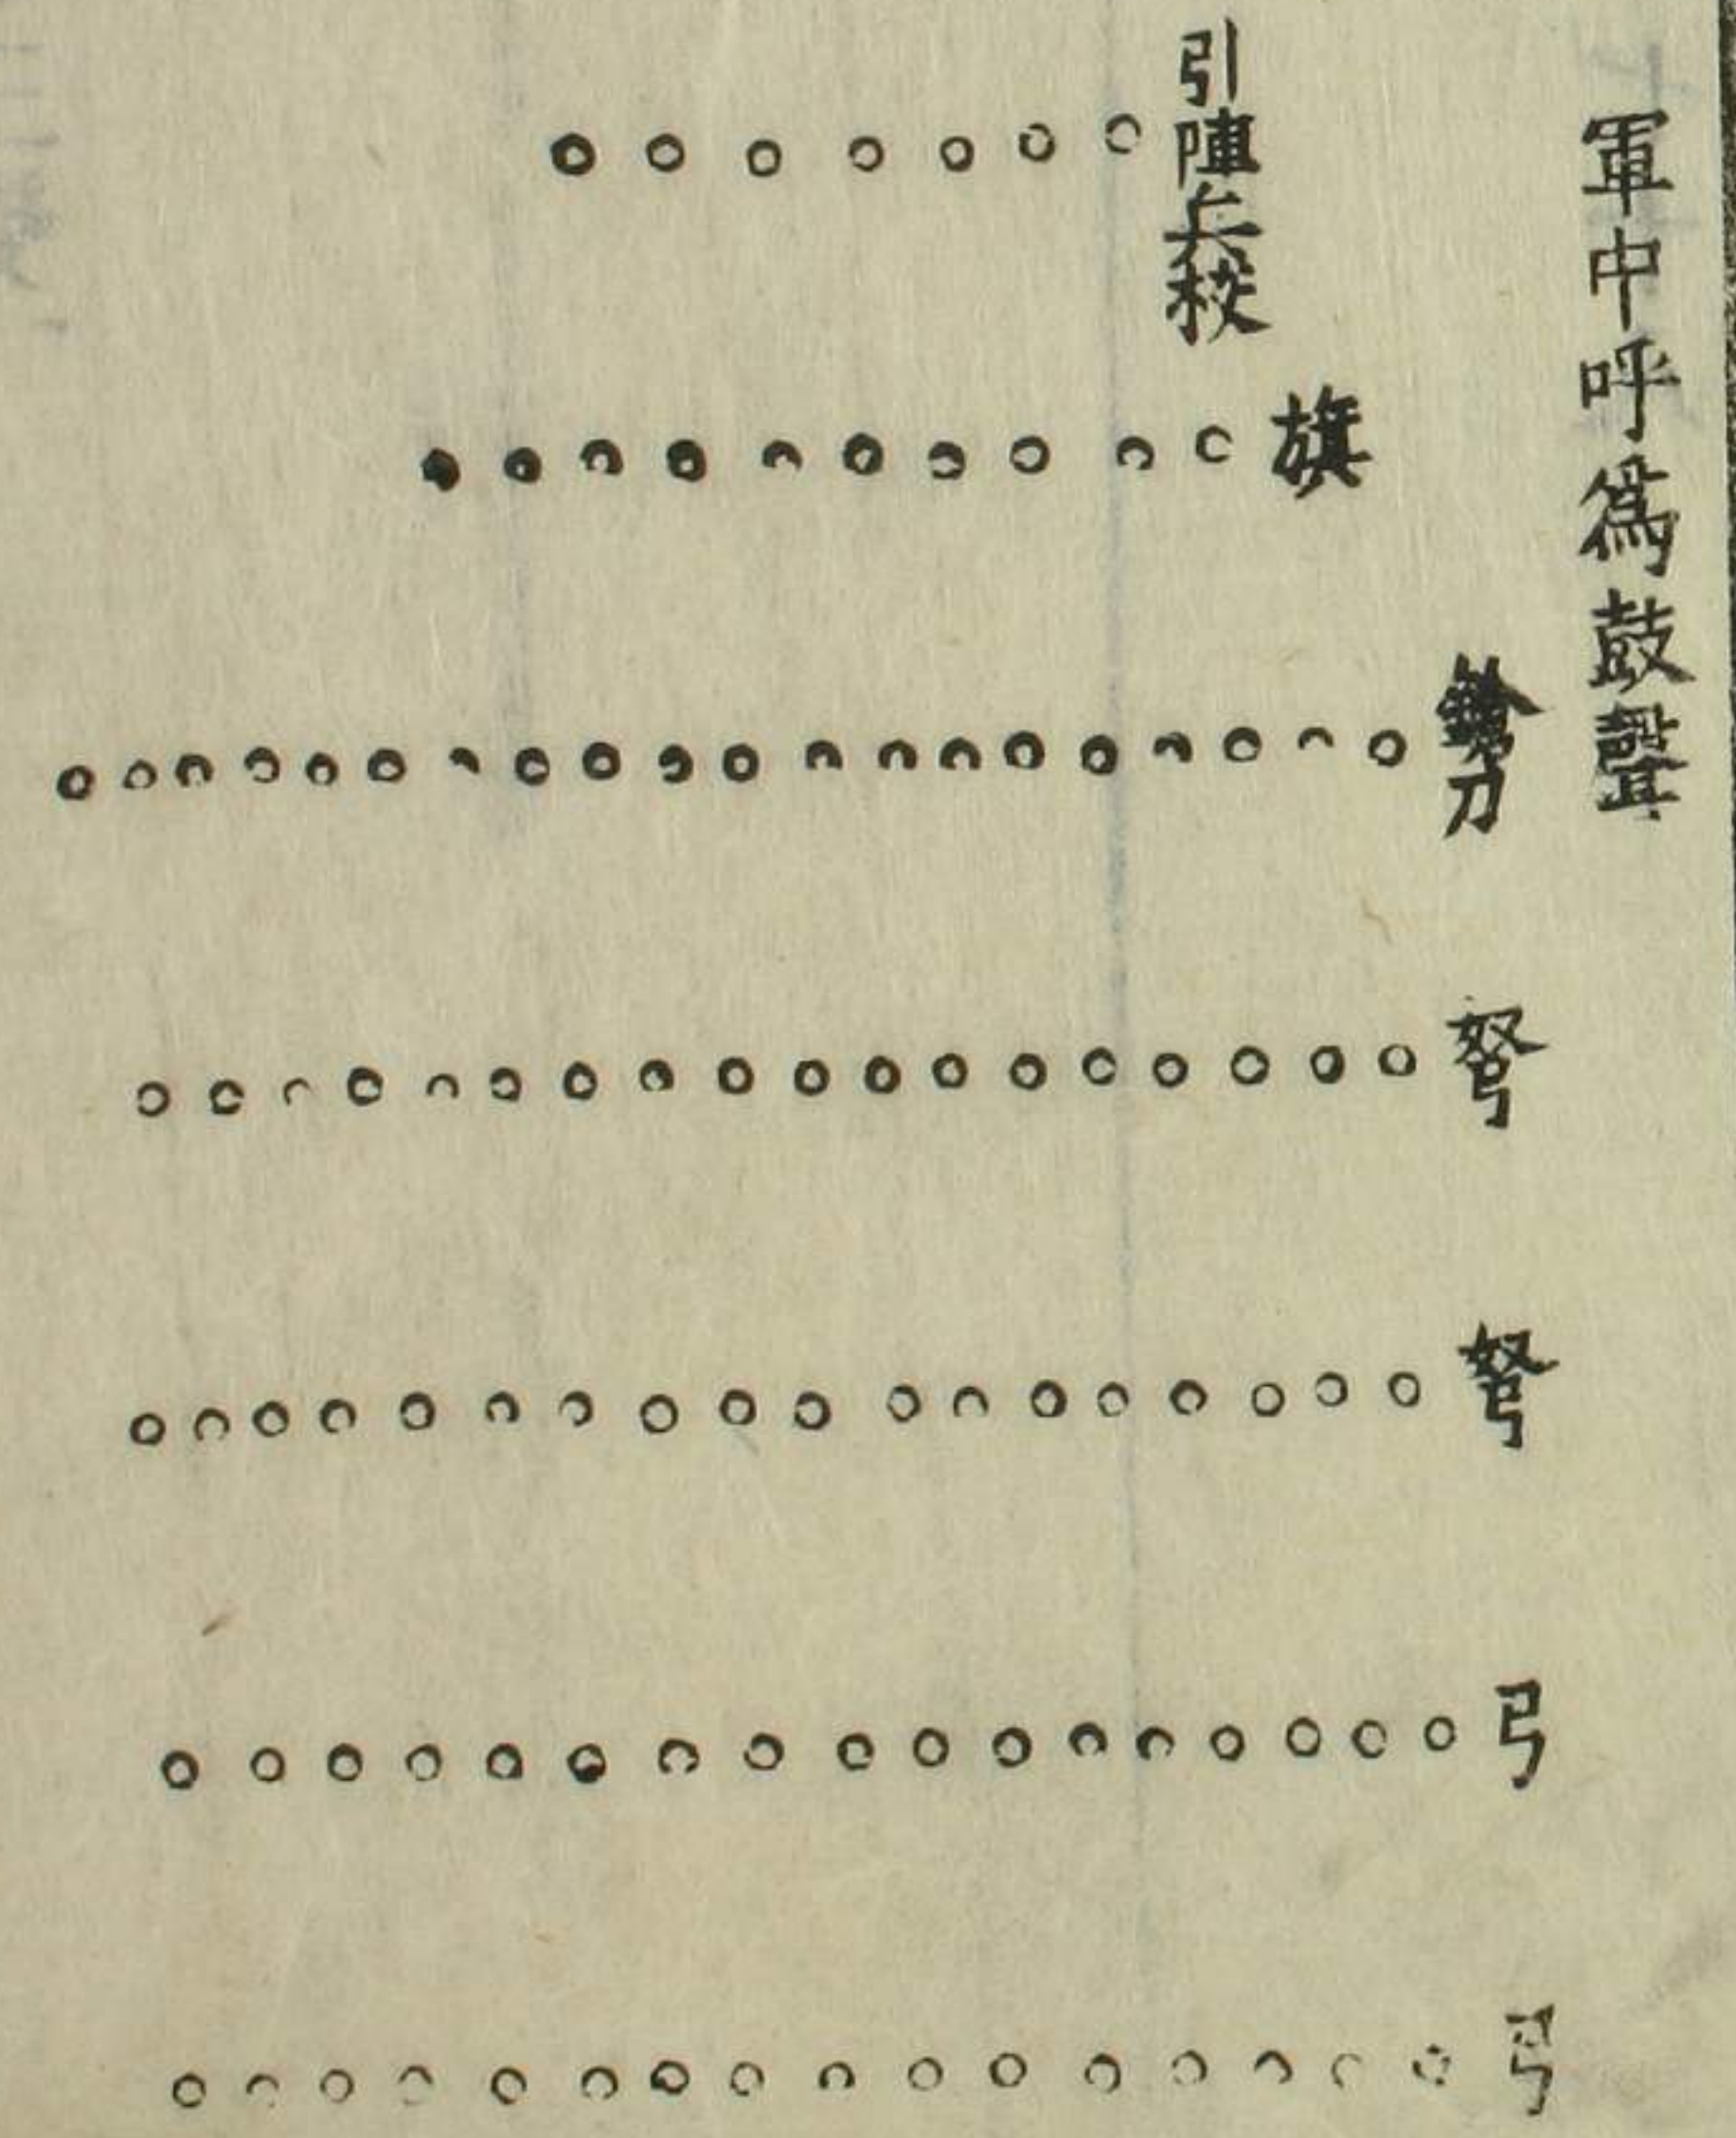 軍中呼爲鼓聲
引陣兵校
旗
鎗刀
弩
弩
弓
弓